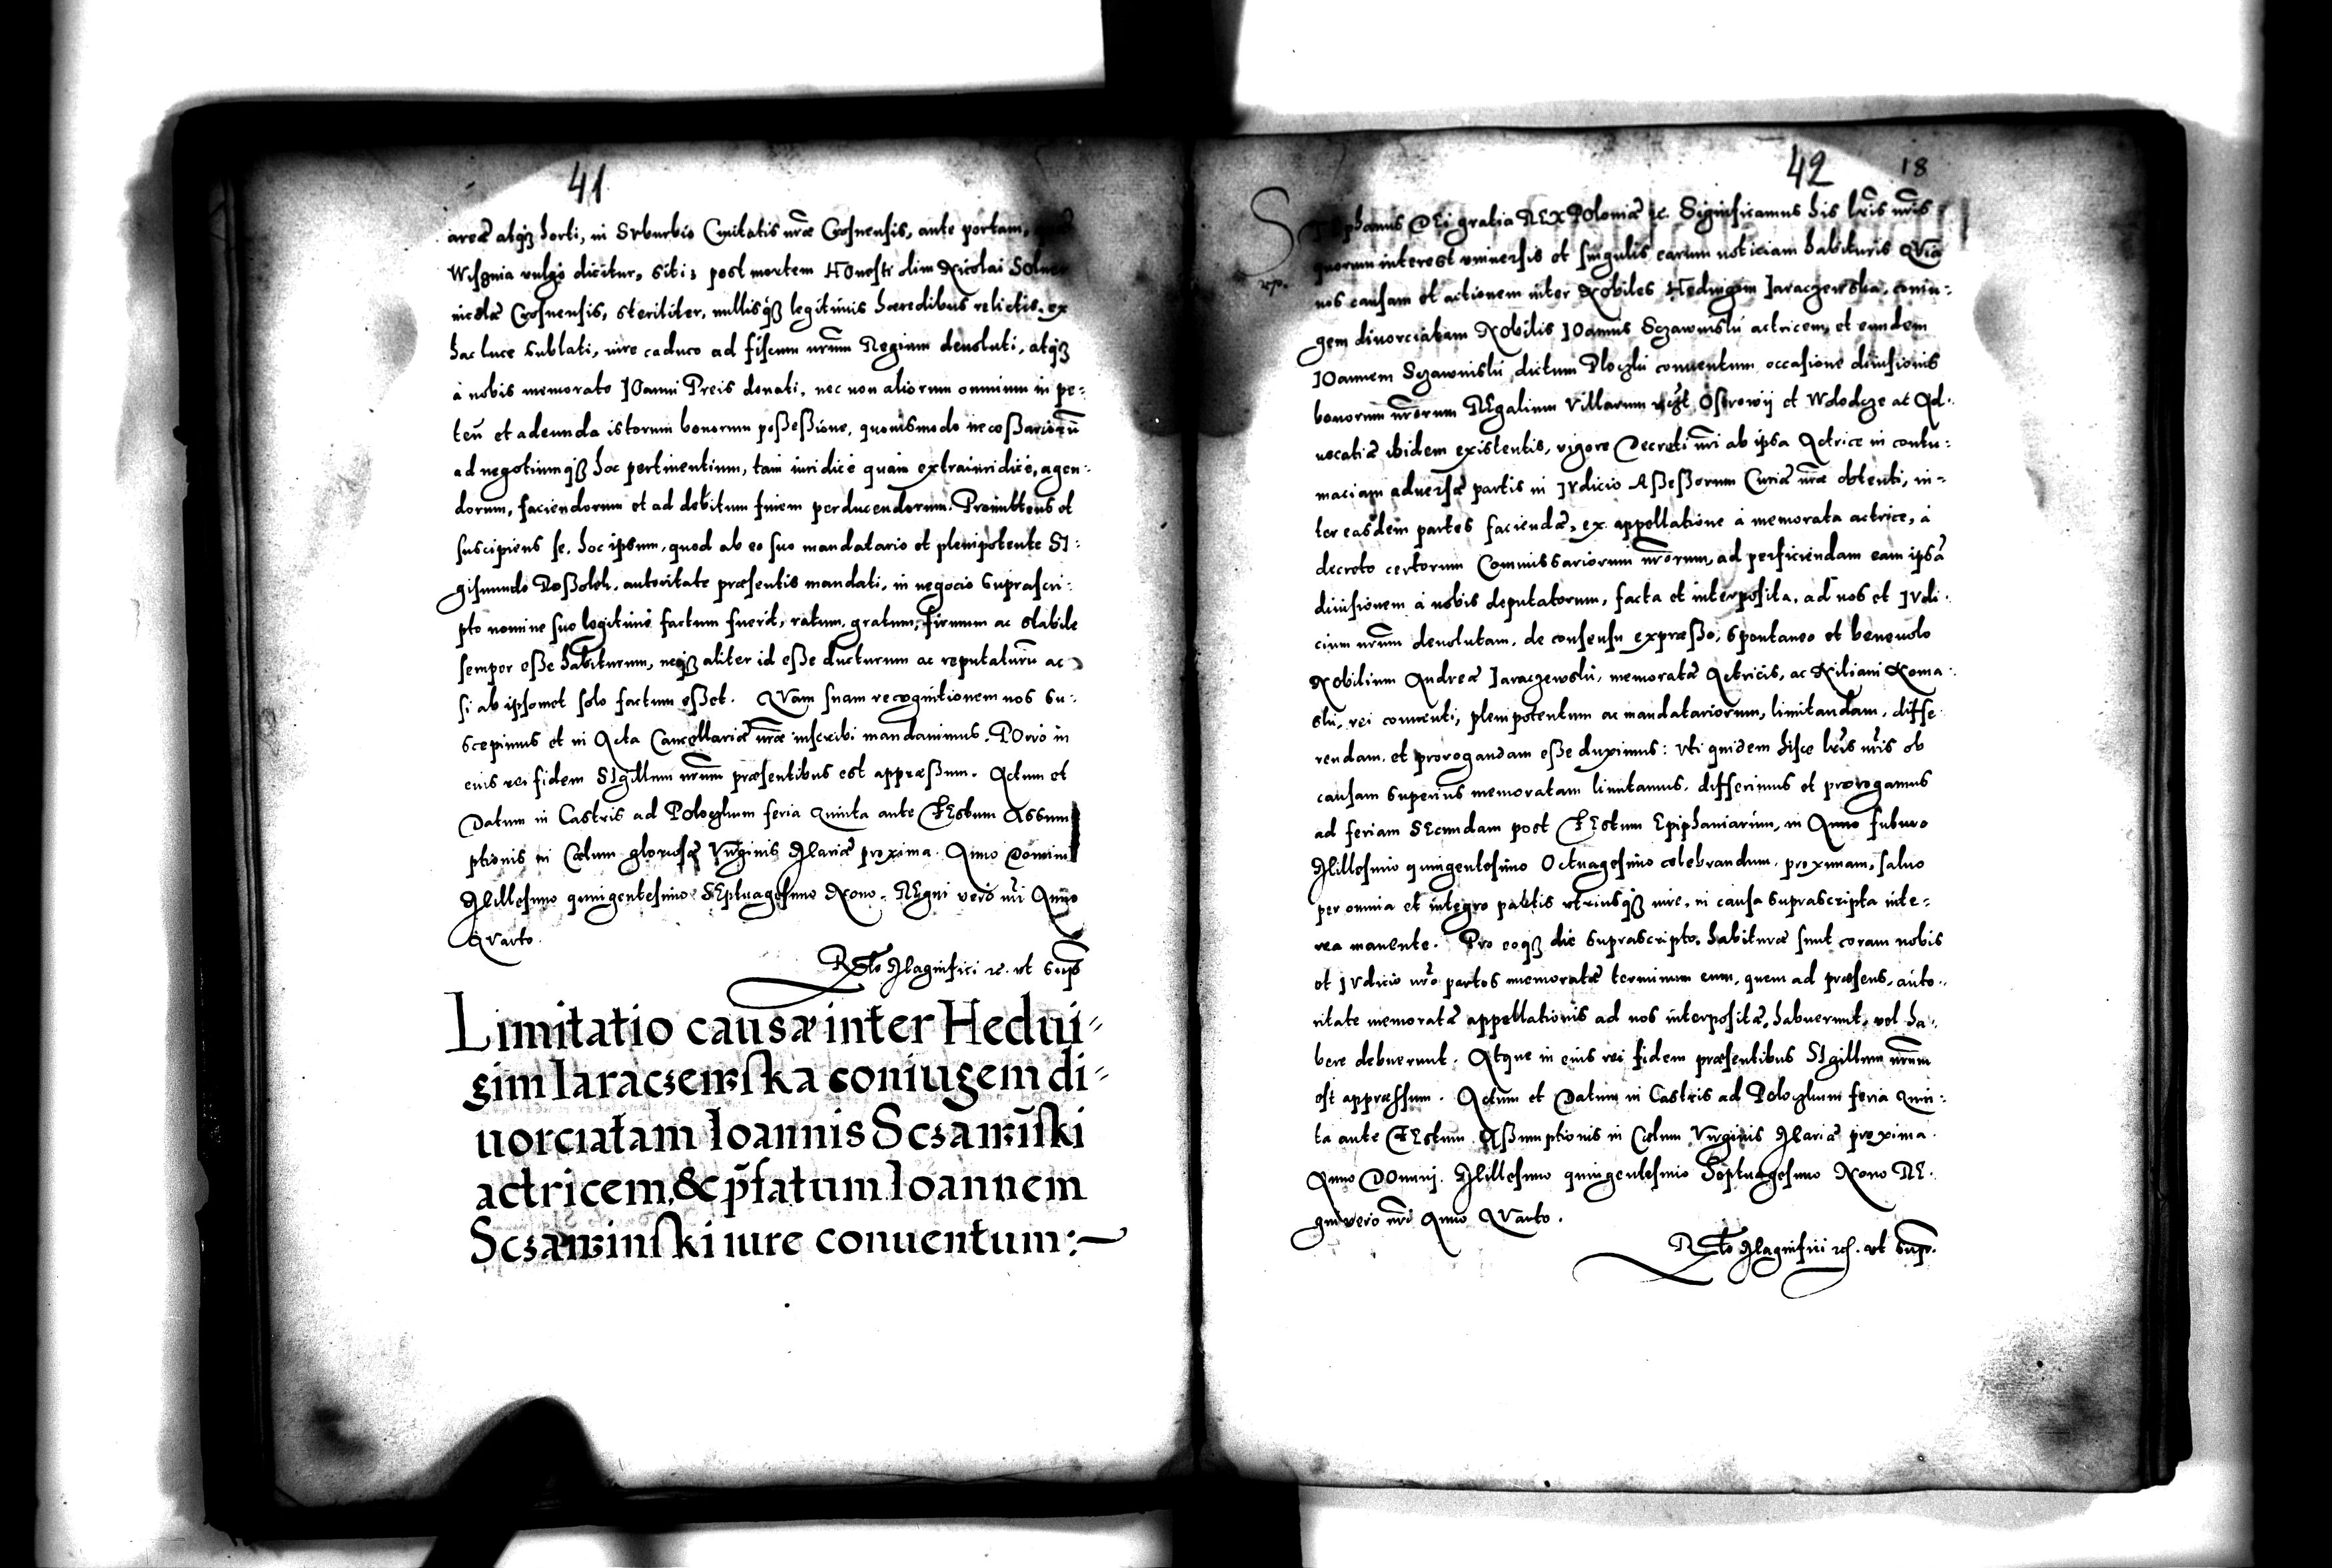 41
areæ atq₃ horti, in Svburbio Ciuitatis nr̃æ Crosnensis, ante portam,
Wisznia vulgo dicitur, siti; post mortem HOnesti olim Nicolai Solner
incolæ Crosnensis, steriliter, nullisq₃ legitimis hæredibus relictis, ex
hac luce sublati, iure caduco ad fiscum nrũm Regium deuoluti, atq₃
à nobis memorato IOanni Preis donati, nec non aliorum omnium in pe:
ten: et adeunda istorum bonorum poßeßione, quouismodo necoßariorũ
ad negotiumq₃ hoc pertinentium, tam iuridicè quam extraiuridicè, agen:
dorum, faciendorum et ad debitum finem perducendorum. Promittens et
suscipiens se, hoc ipsum, quod ab eo suo mandatario et plenipotente SI:
gismundo Roßolek, autoritate præsentis mandati, in negocio suprascri:
pto nomine suo legitimè factum fuerit, ratum, gratum, firmum ac stabile
semper eße habiturum, neq₃ aliter id eße ducturum ac reputaturũ ac
si ab ipsomet solo factum eßet. QVam suam recognitionem nos su:
scepimus et in Acta Cancellariæ nr̃æ inscribi mandauimus. POrrò in
eius rei fidem SIgillum nrũm præsentibus est appræßum. Actum et
Datum in Castris ad Poloczkum feria Quinta ante FEstum Assum
ptionis in Cœlum gloriosæ Virginis Mariæ proxima. Anno Domini
Millesimo quingentesimo SEptuagesimo Nono. REgni verò nr̃i Anno
QVarto.
RElo Magnifici &c. vt supr̃
Limitatio causæ inter Hedui⸗
gim Iaraczewska coniugem di⸗
uorciatam Ioannis Sczawiński
actricem, & p̃fatum Ioannem
Sczawinski iure conuentum:~
42 18
STephanus DEi gratia REX POloniæ &c. Significamus his lr̃is nr̃is
quorum interest vniuersis et singulis earum noticiam habituris QVia
nos causam et actionem inter Nobiles Heduigim Iaraczewska, coniu:
gem diuorciatam Nobilis IOannis Sczawiński actricem, et eundem
IOannem Sczawinski, dictum Ploczki conuentum, occasione diuisionis
bonorum nrõrum REgalium Villarum vẓt Ostrowij et Wlodcze ac Ad:
uocatiæ ibidem existentis, vigore Decreti nr̃i ab ipsa Actrice in contu:
maciam aduersæ partis in IVdicio Aßeßorum Curiæ nr̃æ obtenti, in⸗
ter easdem partes faciendæ, ex appellatione à memorata actrice, à
decreto certorum Commissariorum nrõrum, ad perficiendam eam ipsã
diuisionem à nobis deputatorum, facta et interposita, ad nos et IVdi:
cium nrũm deuolutam, de consensu expræßo, spontaneo et beneuolo
Nobilium Andreæ Iaraczewski, memoratæ Actricis, ac Kiliani Roma:
ski, rei conuenti, plenipotentum ac mandatariorum, limitandam, diffe
rendam, et prorogandam eße duximus: vti quidem hisce lr̃is nr̃is ob
causam superius memoratam limitamus, differimus et prorogamus
ad feriam SEcundam post FEstum Epiphaniarum, in Anno futuro
Millesimo quingentesimo Octuagesimo celebrandum, proximam, saluo
per omnia et integro partis vtriusq₃ iure, in causa suprascripta inte⸗
rea manente. Pro eoq₃ die suprascripto, habituræ sunt coram nobis
et IVdicio nrõ partes memoratæ terminum eum, quem ad præsens, auto⸗
ritate memoratæ appellationis ad nos interpositæ, habuerunt, vel ha⸗
bere debuerunt. Atque in eius rei fidem præsentibus SIgillum nrũm
est appræssum. Actum et Datum in Castris ad Poloczkum feria Quin:
ta ante FEstum Aßumptionis in Cœlum Virginis Mariæ proxima.
Anno DOmini. Millesimo quingentesimo Septuagesimo Nono RE:
gni vero nr̃i Anno QVarto.
RElo Magnifici &c. vt supr.